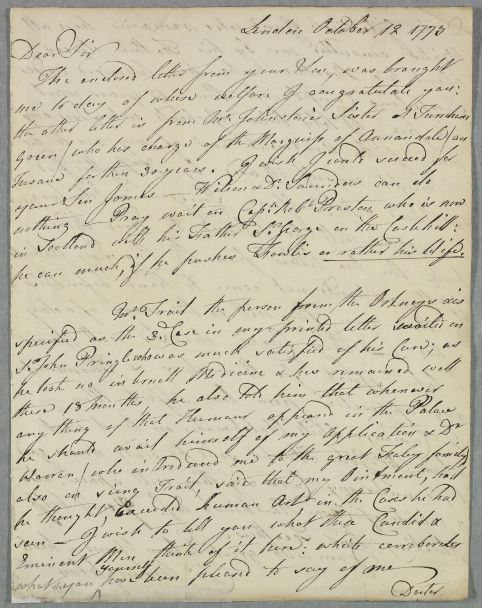 London October 12 1773
Dear Sir
The enclosed letter from your Son, was brought
me to day of whose welfare I congratulate you:
the other letter is from Mrs Johnstone's Sister at Turnham
Green / who has charge of the Marquiss of Annandale / an
Insane for thirty 30 years. I wish I could succeed for
your Son James — Wilson & Dr. Saunders can do
nothing — Pray wait on Captn Robt Preston, who is now
in Scotland with his Father Sr George on the Castlehill:
he can much, if he pushes Fowlis or rather his Wife.
Mr Trail the person from the Orkneys
specified as the 3d. Case in my printed letter waited on
Sr John Pringle who was much satisfied of his Cure; as
he took no inward Medicine & has remained well
these 18 months he also told him that whenever
any thing of that Humour appeared in the Palace
he should avail himself of my Application & Dr
Warren / who introduced me to the great family
also on seeing Trail, said that my Ointment, had
he thought, exceeded human Art in the Cases he had
seen — I wish to tell you what these Candid &
Eminent Men think of it here: which corroborates
what you yourself have been pleased to say of me —
Doctor